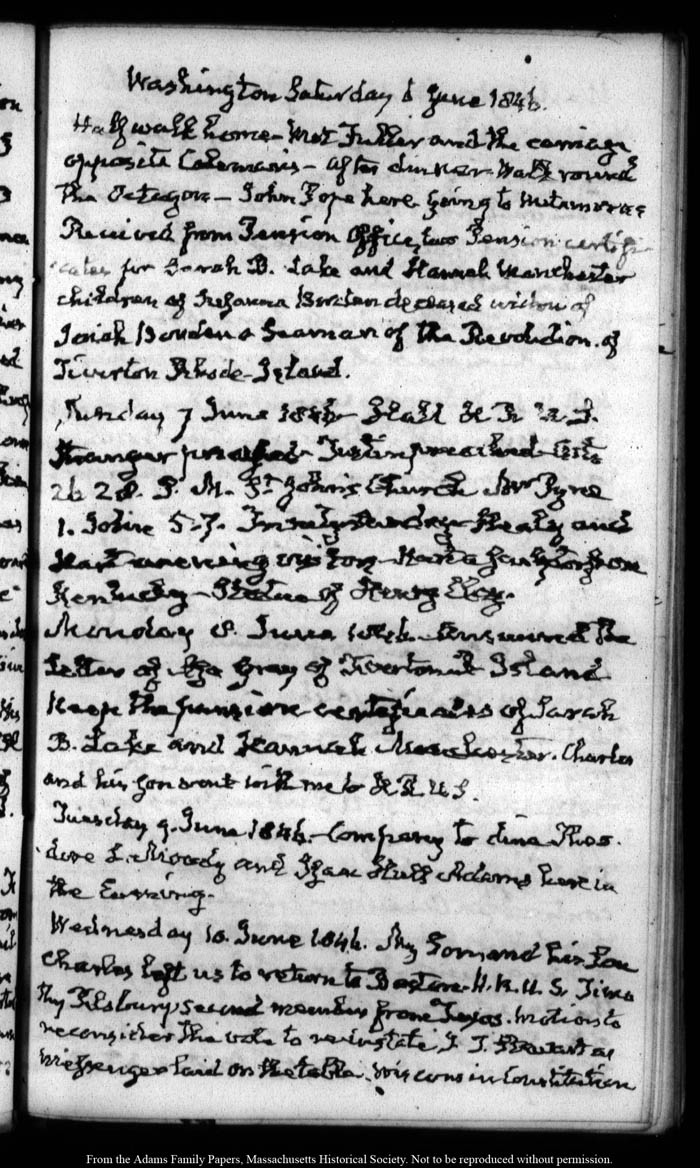 Washington Saturday 6 June 1846.
Half walk home - Met Fuller and the carriage
opposite Coleman's - after dinner walk round
the Octagon - John Pope here going to Matamoras
Received from Pension Office, two Pension certifi-
cates for Sarah B. Lake and Hannah Manchester
children of Susanna Borden deceased widow of
Isaiah Borden a Seaman of the Revolution. of
Tiverton Rhode-Island.
Sunday 7 June 1846 - Hall H R U.S.
Stranger preached
26 28. P. M. St. John's Church Mr Pyne
1. John 5-7. and
evening visitors - Hart a from
Kentucky - Statue of Henry Clay.
Monday 8. June 1846. Answered the
letter of Gray of Tiverton R Island
Keep the pension certificates of Sarah
B. Lake and Hannah Manchester. Charles
and his son went with me to H R U S.
Tuesday 9. June 1846. - Company to dine Theo-
dore L. Moody and Isaac Hull Adams here in
the Evening.
Wednesday 10. June 1846. My Son and his Son
Charles left us to return to Boston. H. R. U. S. Timo
thy Pilsbury, second member from Texas. Motion to
reconsider the vote to reinstate J. J. Stewart as
messenger laid on the table. Wisconsin Constitution
From the Adams Family Papers, Massachusetts Historical Society. Not to be reproduced without permission.